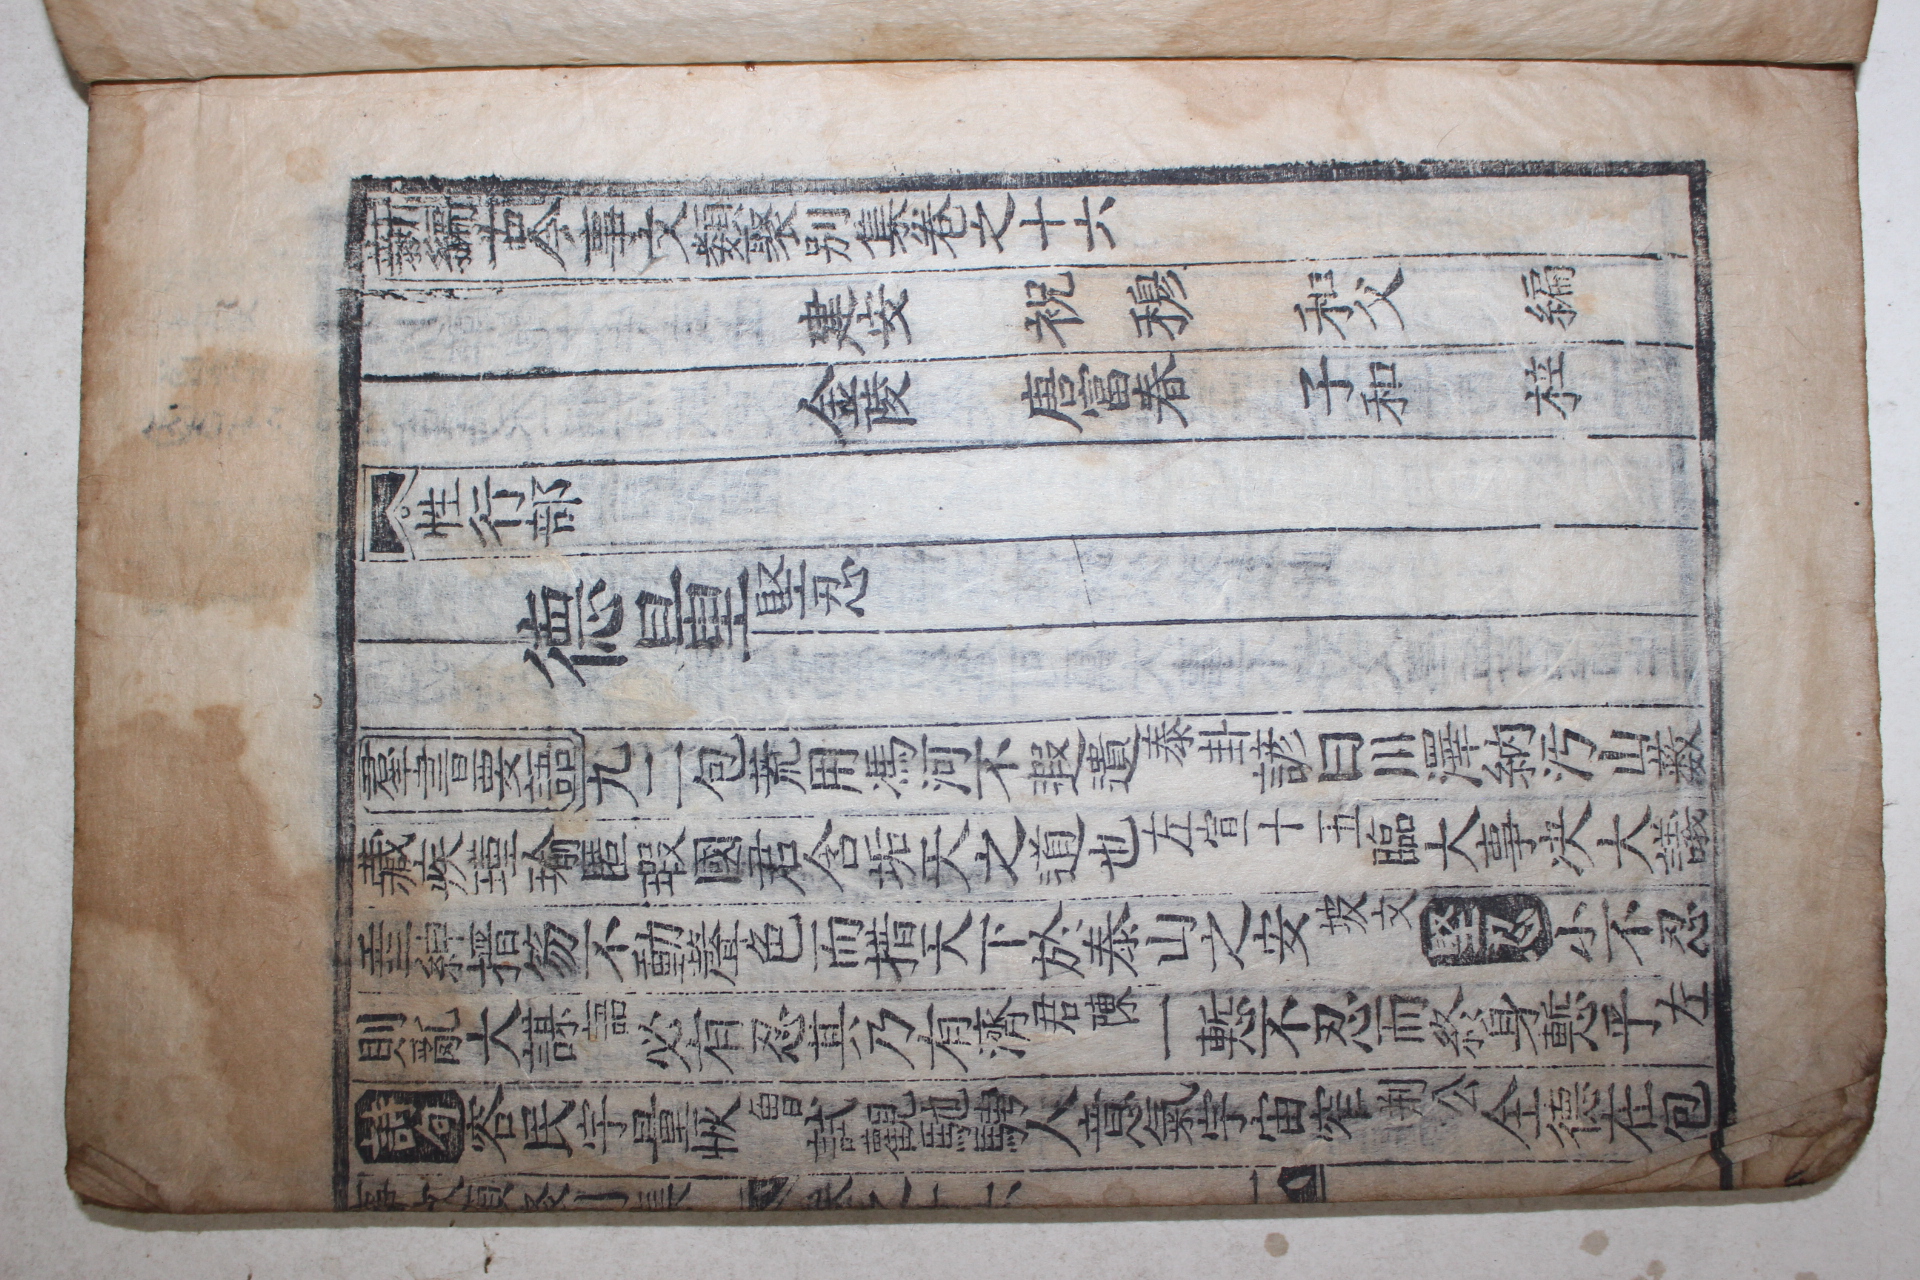 新編古今事文類聚別集卷之十六
建安 祝 穆 和父 編
金陵 唐富春 子和 梓
性行部
德量 堅忍
羣書要語 九二包荒用馮河不遐遺 泰卦 諺曰川澤納污山藪
藏疾瑾瑜匿瑕國君含垢天之道也 左宣十五 臨大事决大議
垂紳搢笏不動聲色而措天下於泰山之安 坡文 堅忍 小不忍
則亂大謀 語 必有忍其乃有濟 君陳 一慙不忍而終身慙乎 左
詩句 容民字量恢 魯曾 試觀馳騁人意氣宇宙窄 荆公 全德在包
事文類聚別集 卷之十六 一